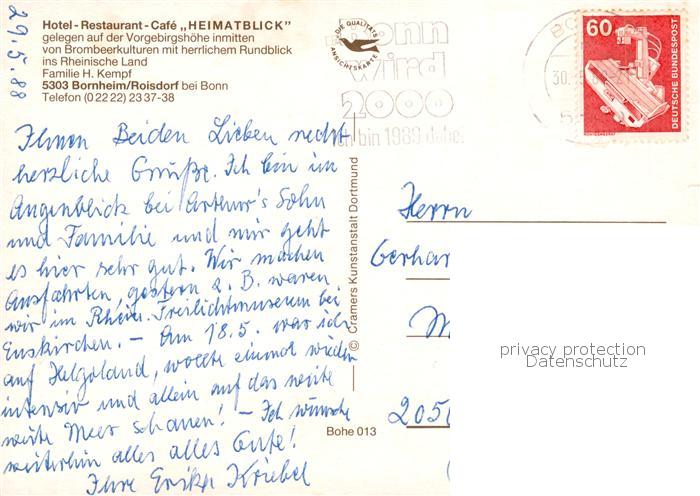 29.5.88
Hotel - Restaurant - Café „HEIMATBLICK"
gelegen auf der Vorgebirgshöhe inmitten
von Brombeerkulturen mit herrlichem Rundblick
ins Rheinische Land
Familie H. Kempf
5303 Bornheim/Roisdorf bei Bonn
Telefon (0 22 22) 23 37-38
DIE QUALITÄTS
ANSICHTSKARTE
Bonn
wird
2000
Ich bin 1989 dabei
30.5.88
60
DEUTSCHE BUNDESPOST
Ihnen Beiden Lieben recht
herzliche Grüße. Ich bin im
Augenblick bei Arthur's Sohn
und Familie und mir geht
es hier sehr gut. Wir machen
Ausfahrten, gestern z. B. waren
wir im Rhein. Freilichtmuseum bei
Euskirchen. – Am 18.5. war ich
auf Helgoland, wollte einmal wieder
intensiv und allein auf das weite
weite Meer schauen! – Ich wünsche
weiterhin alles alles Gute!
Ihre Erika Kriebel
© Cramers Kunstanstalt Dortmund
Bohe 013
Herrn
Gerhar
205
privacy protection
Datenschutz